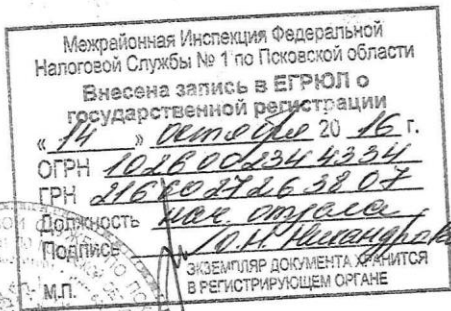 Межрайонная Инспекция Федеральной
Налоговой Службы № 1 по Псковской области
Внесена запись в ЕГРЮЛ о
государственной регистрации
« 14 » октября 20 16 г.
ОГРН 1026002344334
ГРН 2166027263807
Должность нач отдела
Подпись / О.Н. Никандрова
М.П.
ЭКЗЕМПЛЯР ДОКУМЕНТА ХРАНИТСЯ
В РЕГИСТРИРУЮЩЕМ ОРГАНЕ